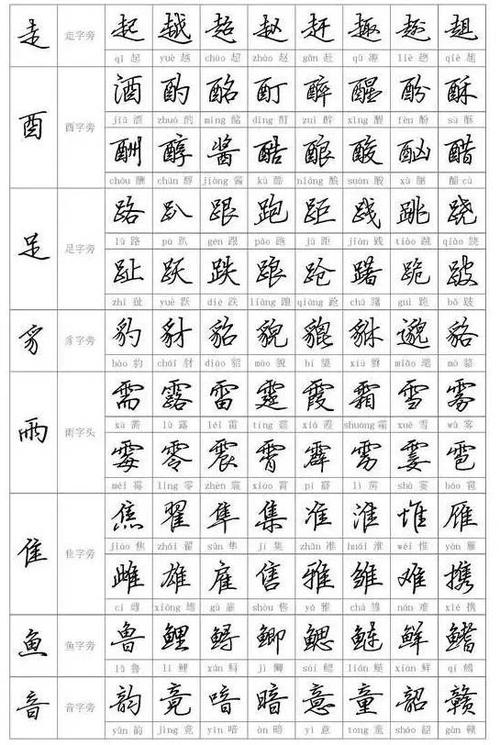 走 走字旁 起 越 超 赵 赶 趣 趔 趄
qǐ 起 yuè 越 chāo 超 zhào 赵 gǎn 赶 qù 趣 liè 趔 qiè 趄
酉 酉字旁 酒 酌 酩 酊 醉 醒 酚 酥
jiǔ 酒 zhuó 酌 mǐng 酩 dǐng 酊 zuì 醉 xǐng 醒 fēn 酚 sū 酥
酬 醇 酱 酷 酿 酸 酗 醋
chóu 酬 chún 醇 jiàng 酱 kù 酷 niàng 酿 suān 酸 xù 酗 醋 cù
足 足字旁 路 趴 跟 跑 距 践 跳 跷
lù 路 pā 趴 gēn 跟 pǎo 跑 jù 距 jiàn 践 tiào 跳 qiāo 跷
趾 跃 跌 踉 跄 躇 跪 跛
zhǐ 趾 yuè 跃 diē 跌 liàng 踉 qiàng 跄 chú 躇 guì 跪 bǒ 跛
豸 豸字旁 豹 豺 貂 貌 貔 貅 邈 貉
bào 豹 chái 豺 diāo 貂 mào 貌 pí 貔 xiū 貅 miǎo 邈 貉
雨 雨字头 需 露 雷 霆 霞 霜 雪 雾
xū 需 lù 露 léi 雷 tíng 霆 xiá 霞 shuāng 霜 xuě 雪 wù 雾
霉 零 震 霄 霹 雳 霎 雹
méi 霉 líng 零 zhèn 震 xiāo 霄 pī 霹 lì 雳 shà 霎 báo 雹
隹 隹字旁 焦 翟 隼 集 准 淮 惟 雁
jiāo 焦 zhái 翟 sǔn 隼 jí 集 zhǔn 准 huái 淮 wéi 惟 yàn 雁
雌 雄 雇 售 雅 雏 难 携
cí 雌 xióng 雄 gù 雇 shòu 售 yǎ 雅 chú 雏 nán 难 xié 携
鱼 鱼字旁 鲁 鲤 鲟 鲫 鳃 鲢 鲜 鳍
lǔ 鲁 lǐ 鲤 xún 鲟 jì 鲫 sāi 鳃 lián 鲢 xiān 鲜 qí 鳍
音 音字旁 韵 竟 喑 暗 意 童 韶 赣
yùn 韵 jìng 竟 yīn 喑 àn 暗 yì 意 tóng 童 sháo 韶 gàn 赣